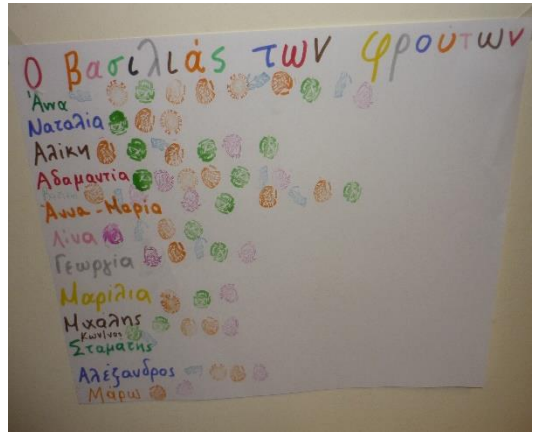 Ο βασιλιάς των φρούτων
Άννα
Ναταλία
Αλίκη
Αδαμαντία
Άννα-Μαρία
Λίνα
Γεωργία
Μαρίλια
Μιχάλης
Σταμάτης
Αλέξανδρος
Μάρω